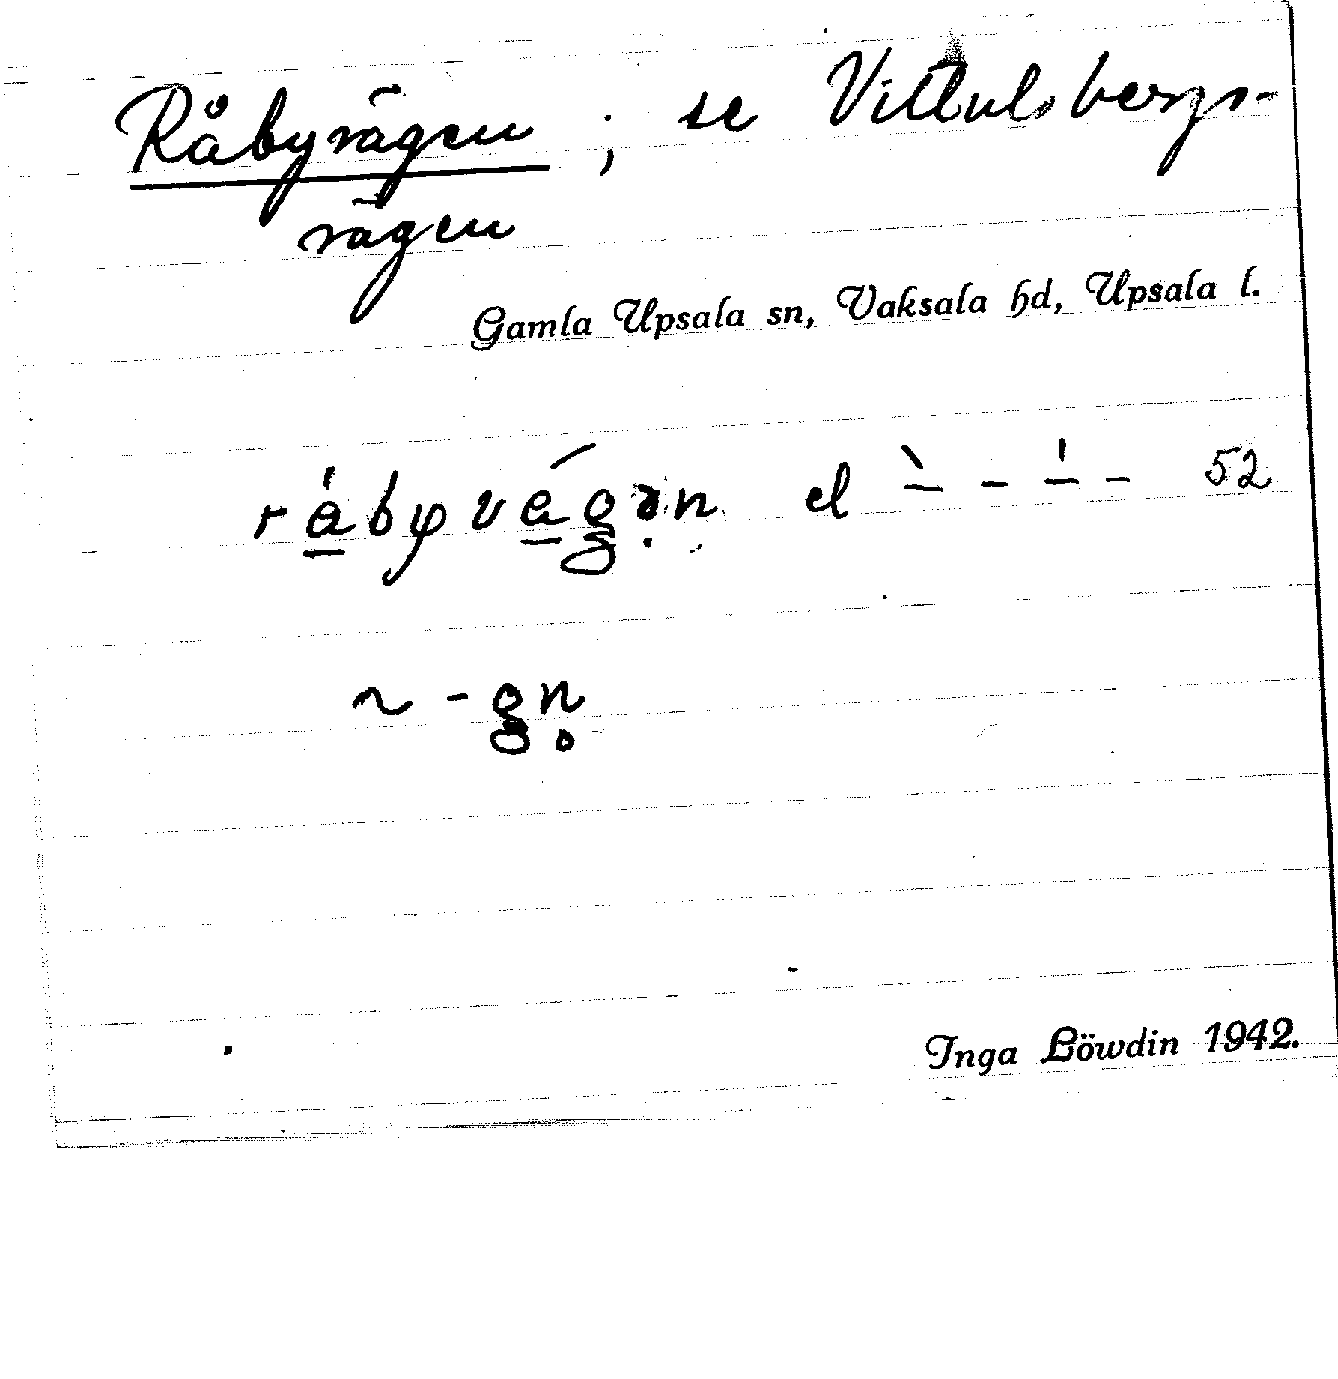 Råbyvägen ; se Vittulsbergs-
vägen
Gamla Upsala sn, Vaksala hd, Upsala l.
el 52
~ -gn̥
Inga Löwdin 1942.